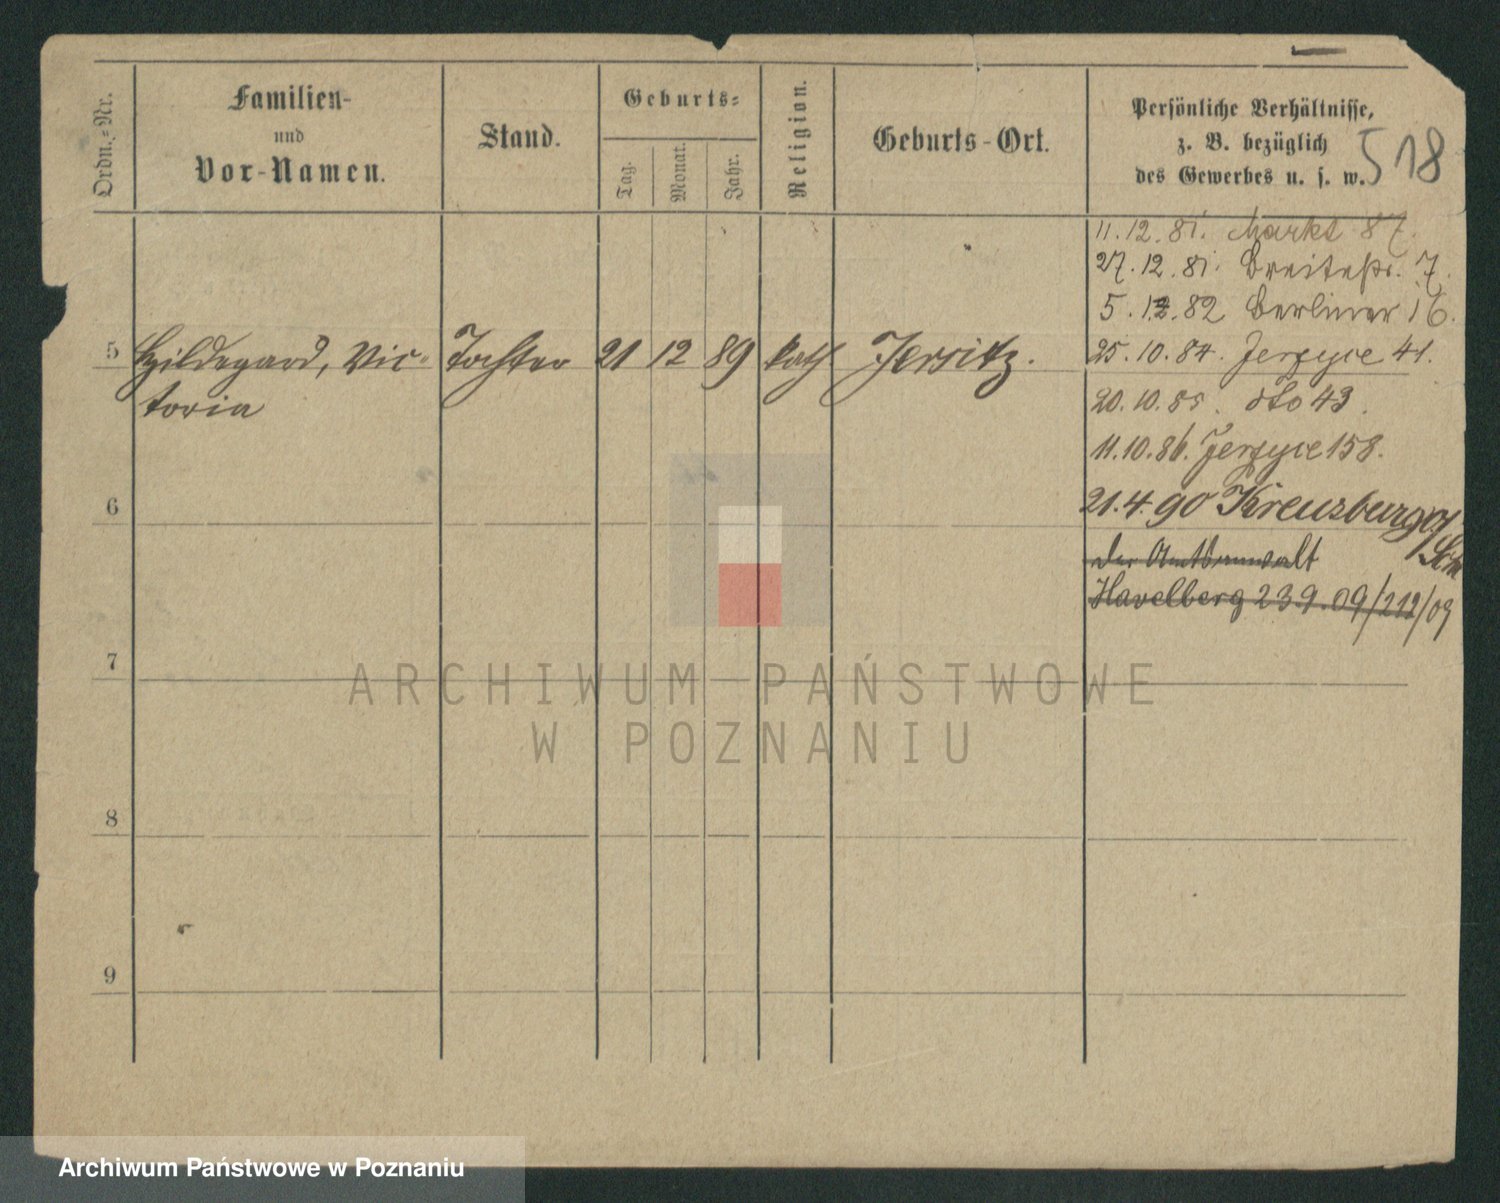 Ordn.-Nr.
Familien-
und
Vor-Namen.
Stand.
Geburts-
Tag.
Monat.
Jahr.
Religion.
Geburts-Ort.
Persönliche Verhältnisse,
z. B. bezüglich
des Gewerbes u. s. w.
518
11.12.81. Markt 87.
27.12.81. Breitestr. 7.
5.12.82 Berliner 16.
5 Hildegard, Vic- Tochter 21 12 89 kath Jersitz. 25.10.84. Jerzyce 41.
toria
20.10.85. dto 43.
11.10.86. Jerzyce 158.
6
21.4.90 Kreuzburg O/
Schl
der Amtsanwalt
Havelberg 23.9.09/212/09
7
8
9
ARCHIWUM PAŃSTWOWE
W POZNANIU
Archiwum Państwowe w Poznaniu